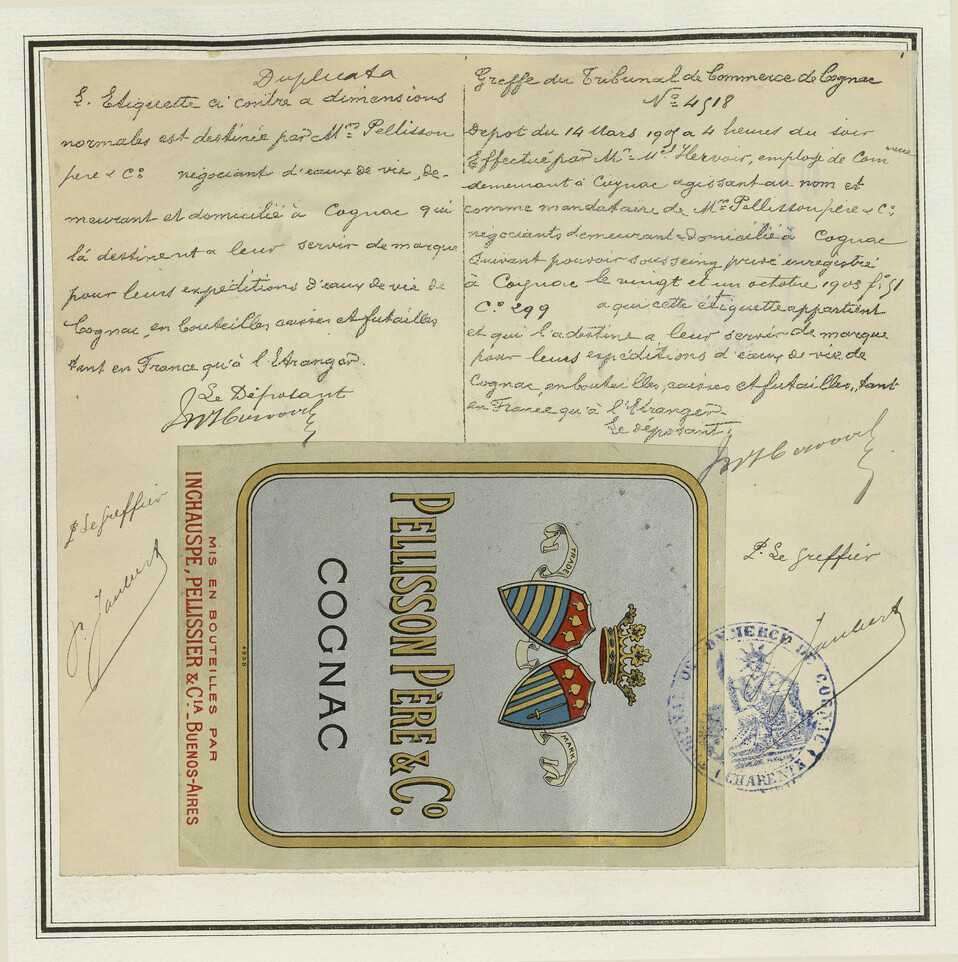 Duplicata
L. Etiquette ci contre a dimensions
normales est destinée par Mrs Pellisson
père & Co negociant d'eaux de vie, de-
meurant et domicilié à Cognac qui
là destinent a leur servir de marque
pour leurs expéditions d'eaux de vie de
Cognac, en bouteilles caisses et futailles
tant en France qu'à l'Etranger.
Le Déposant
P. Le Greffier
P. Jaubert
Greffe du Tribunal de Commerce de Cognac
No 4518
Depot du 14 Mars 1905 a 4 heures du soir
Effectué par Mr Hervoir, employé de Commerce
demeurant à Cognac agissant au nom et
comme mandataire de Mrs Pellisson père & Co
négociants demeurant & domicilié à Cognac
suivant pouvoir sous seing privé enregistré
à Cognac le vingt et un octobre 1903 fo 51
Co 299 a qui cette étiquette appartient
et qui l'a destine a leur servir de marque
pour leurs expéditions d'eaux de vie de
Cognac, en bouteilles, caisses et futailles, tant
en France, qu'à l'Etranger.
Le déposant
P. Le Greffier
Jaubert
TRADE
MARK
PELLISSON PÈRE & Co.
COGNAC
4958
MIS EN BOUTEILLES PAR
INCHAUSPE, PELLISSIER & CIA - BUENOS-AIRES
COMMERCE DE COGNAC
(CHARENTE)